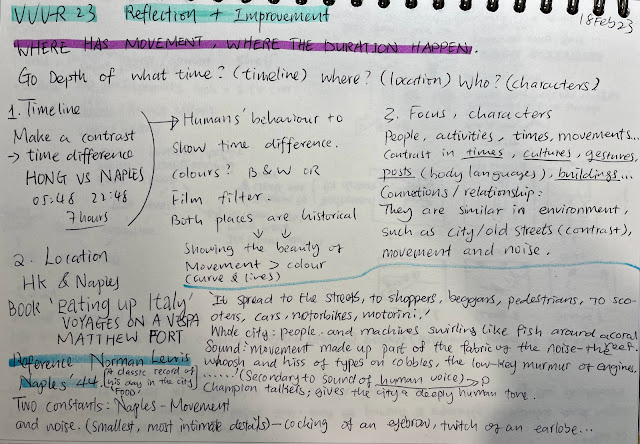 VVV-R 23 Reflection + Improvement
18 Feb 23
WHERE HAS MOVEMENT, WHERE THE DURATION HAPPEN.
Go Depth of what time? (timeline) where? (location) Who? (characters)
1. Timeline
Make a contrast
→ time difference
HONG VS NAPLES
05:48 22:48
7 hours
→ Humans' behaviour to
show time difference.
colours? B & W OR
Film filter.
Both places are historical
↓ ↓
Showing the beauty of
Movement > colour
(curve & lines)
3. Focus, characters
People, activities, times, movements...
Contrast in times, cultures, gestures,
posts (body languages), buildings...
Connetions / relationship:
They are similar in environment,
such as city/old streets (contrast),
movement and noise.
2. Location
HK & Naples
Book 'Eating up Italy'
VOYAGES ON A VESPA
MATTHEW FORT
Reference Norman Lewis
Naples '44
A classic record of
his day in the city
FOOD
'It spread to the streets, to shoppers, beggars, pedestrians, to sco-
oters, cars, motorbikes, motorini,'
Whole city: people and machines swirling like fish around a coral
reef.
Sound: movement made up part of the fabric of the noise - the
whoosh and hiss of types on cobbles, the low-key murmur of engines,
.....' (Secondary to sound of human voice) →
Champion talkers; gives the city a deeply human tone.
Two constants: Naples - Movement
and noise. (smallest, most intimate details) - cocking of an eyebrow, twitch of an earlobe...